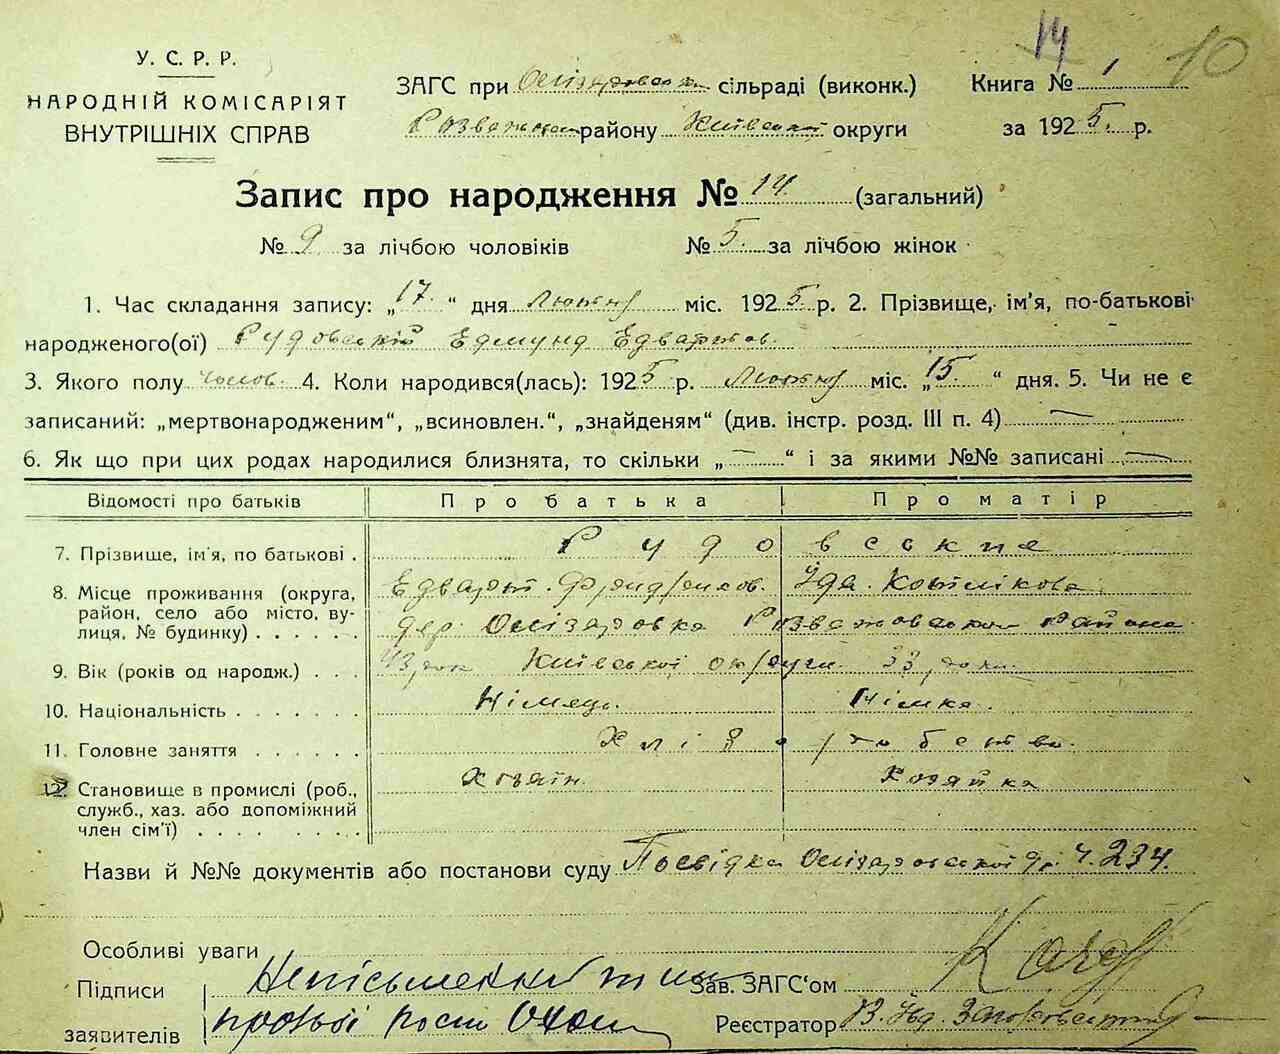 14
10
У. С. Р. Р.
НАРОДНІЙ КОМІСАРІЯТ
ВНУТРІШНІХ СПРАВ
ЗАГС при сільраді (виконк.)
району Київської округи
Книга № 1
за 1925. р.
Запис про народження № 14. (загальний)
№ 9 за лічбою чоловіків № 5. за лічбою жінок
1. Час складання запису: „17. “ дня Лютня міс. 1925. р. 2. Прізвище, ім'я, по-батькові
народженого(ої) Рудовський Едмунд Едвартов.
3. Якого полу чолов. 4. Коли народився(лась): 1925 р. Лютня міс. „15. “ дня. 5. Чи не є
записаний: „мертвонародженим“, „всиновлен.“, „знайденям“ (див. інстр. розд. III п. 4)
6. Як що при цих родах народилися близнята, то скільки „ — “ і за якими №№ записані —
Відомості про батьків Про батька Про матір
7. Прізвище, ім'я, по батькові . Рудовськие
8. Місце проживання (округа, Едварт. Ида.
район, село або місто, ву-
лиця, № будинку) . . . . . дер. Олізаровка района
9. Вік (років од народж.) . . . 43, Київської округи. 33,
10. Національність . . . . . . . Німець. Німка.
11. Головне заняття . . . . . . Хліборобство.
12. Становище в промислі (роб., Хозяїн. Хозяйка
служб., хаз. або допоміжний
член сім'ї) . . . . . . . . .
Назви й №№ документів або постанови суду Посвідка Олізаровської Ч. 234.
Особливі уваги
Підписи
заявителів
Зав. ЗАГС'ом
Реєстратор